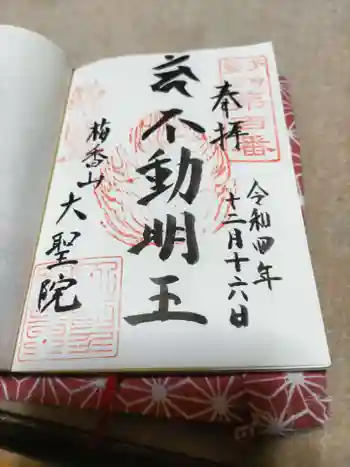 奉拝
令和四年
十二月十六日
不動明王
梅香山
大聖院